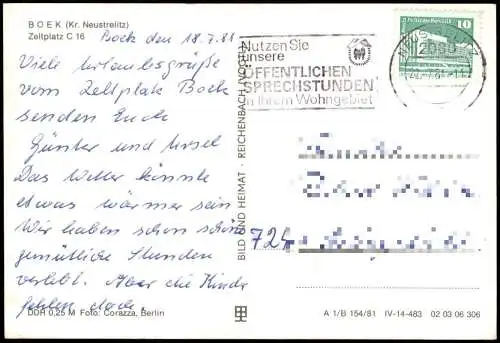 BOEK (Kr. Neustrelitz)
Zeltplatz C 16
Boek den 18.7.81
Viele Urlaubsgrüße
vom Zeltplatz Boek
senden Euch
Günter und Ursel
Das Wetter könnte
etwas wärmer sein
Wir haben schon schöne
gemütliche Stunden
verlebt. Aber die Kinder
fehlen doch.
DDR 0,25 M Foto: Corazza, Berlin
BILD UND HEIMAT REICHENBACH (VOGTL)
Nutzen Sie
unsere
ÖFFENTLICHEN
SPRECHSTUNDEN
in Ihrem Wohngebiet
2080
10
724
A 1/B 154/81 IV-14-483 02 03 06 306